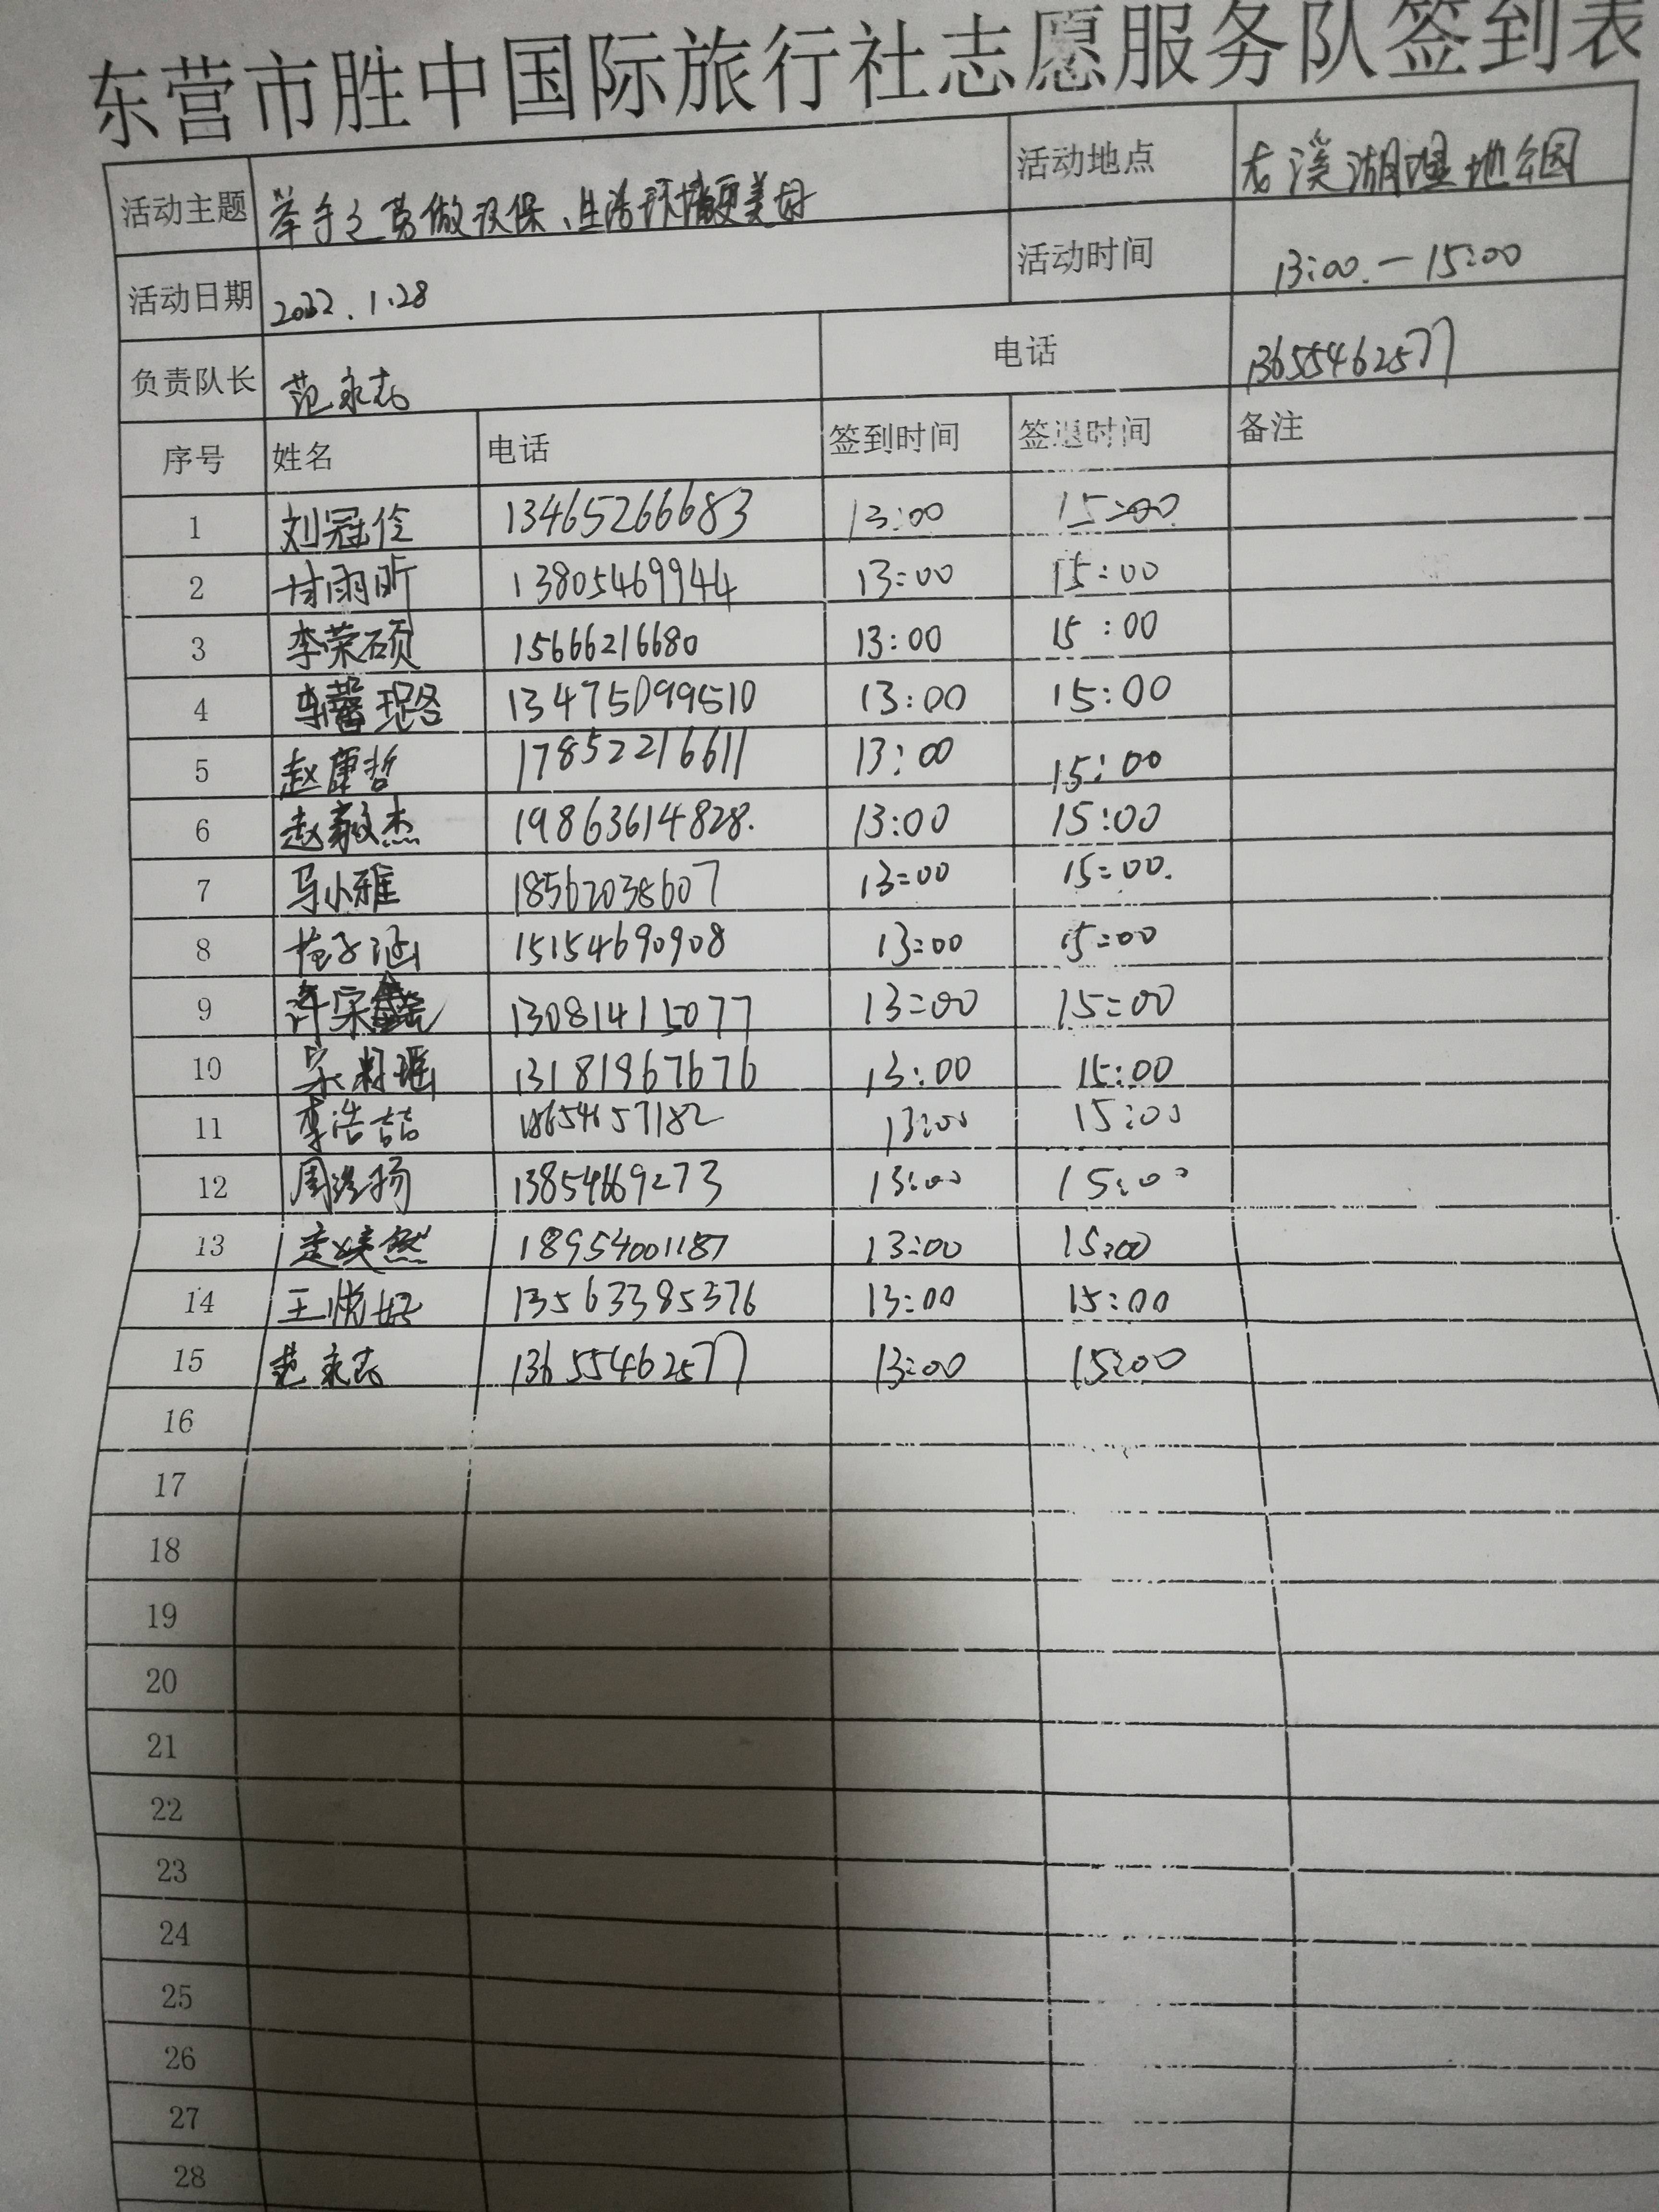 东营市胜中国际旅行社志愿服务队签到表
活动主题 举手之劳做环保、生活环境更美好 活动地点 湖湿地公园
活动日期 2022.1.28 活动时间 13:00.—15:00
负责队长 范永志 电话 13655462577
序号 姓名 电话 签到时间 签退时间 备注
1 刘冠伶 13465266683 13:00 15:00
2 甘雨昕 13805469944 13:00 15:00
3 李荣硕 15666216680 13:00 15:00
4 13475099510 13:00 15:00
5 赵康哲 17852216611 13:00 15:00
6 赵毅杰 19863614828. 13:00 15:00
7 马小雅 18562038607 13:00 15:00.
8 15154690908 13:00 15:00
9 13081415077 13:00 15:00
10 13181967676 13:00 15:00
11 李浩喆 18654657182 13:00 15:00
12 13:00 15:00
13 18954001187 13:00 15:00
14 王悦妤 13563385376 13:00 15:00
15 范永志 13655462577 13:00 15:00
16
17
18
19
20
21
22
23
24
25
26
27
28